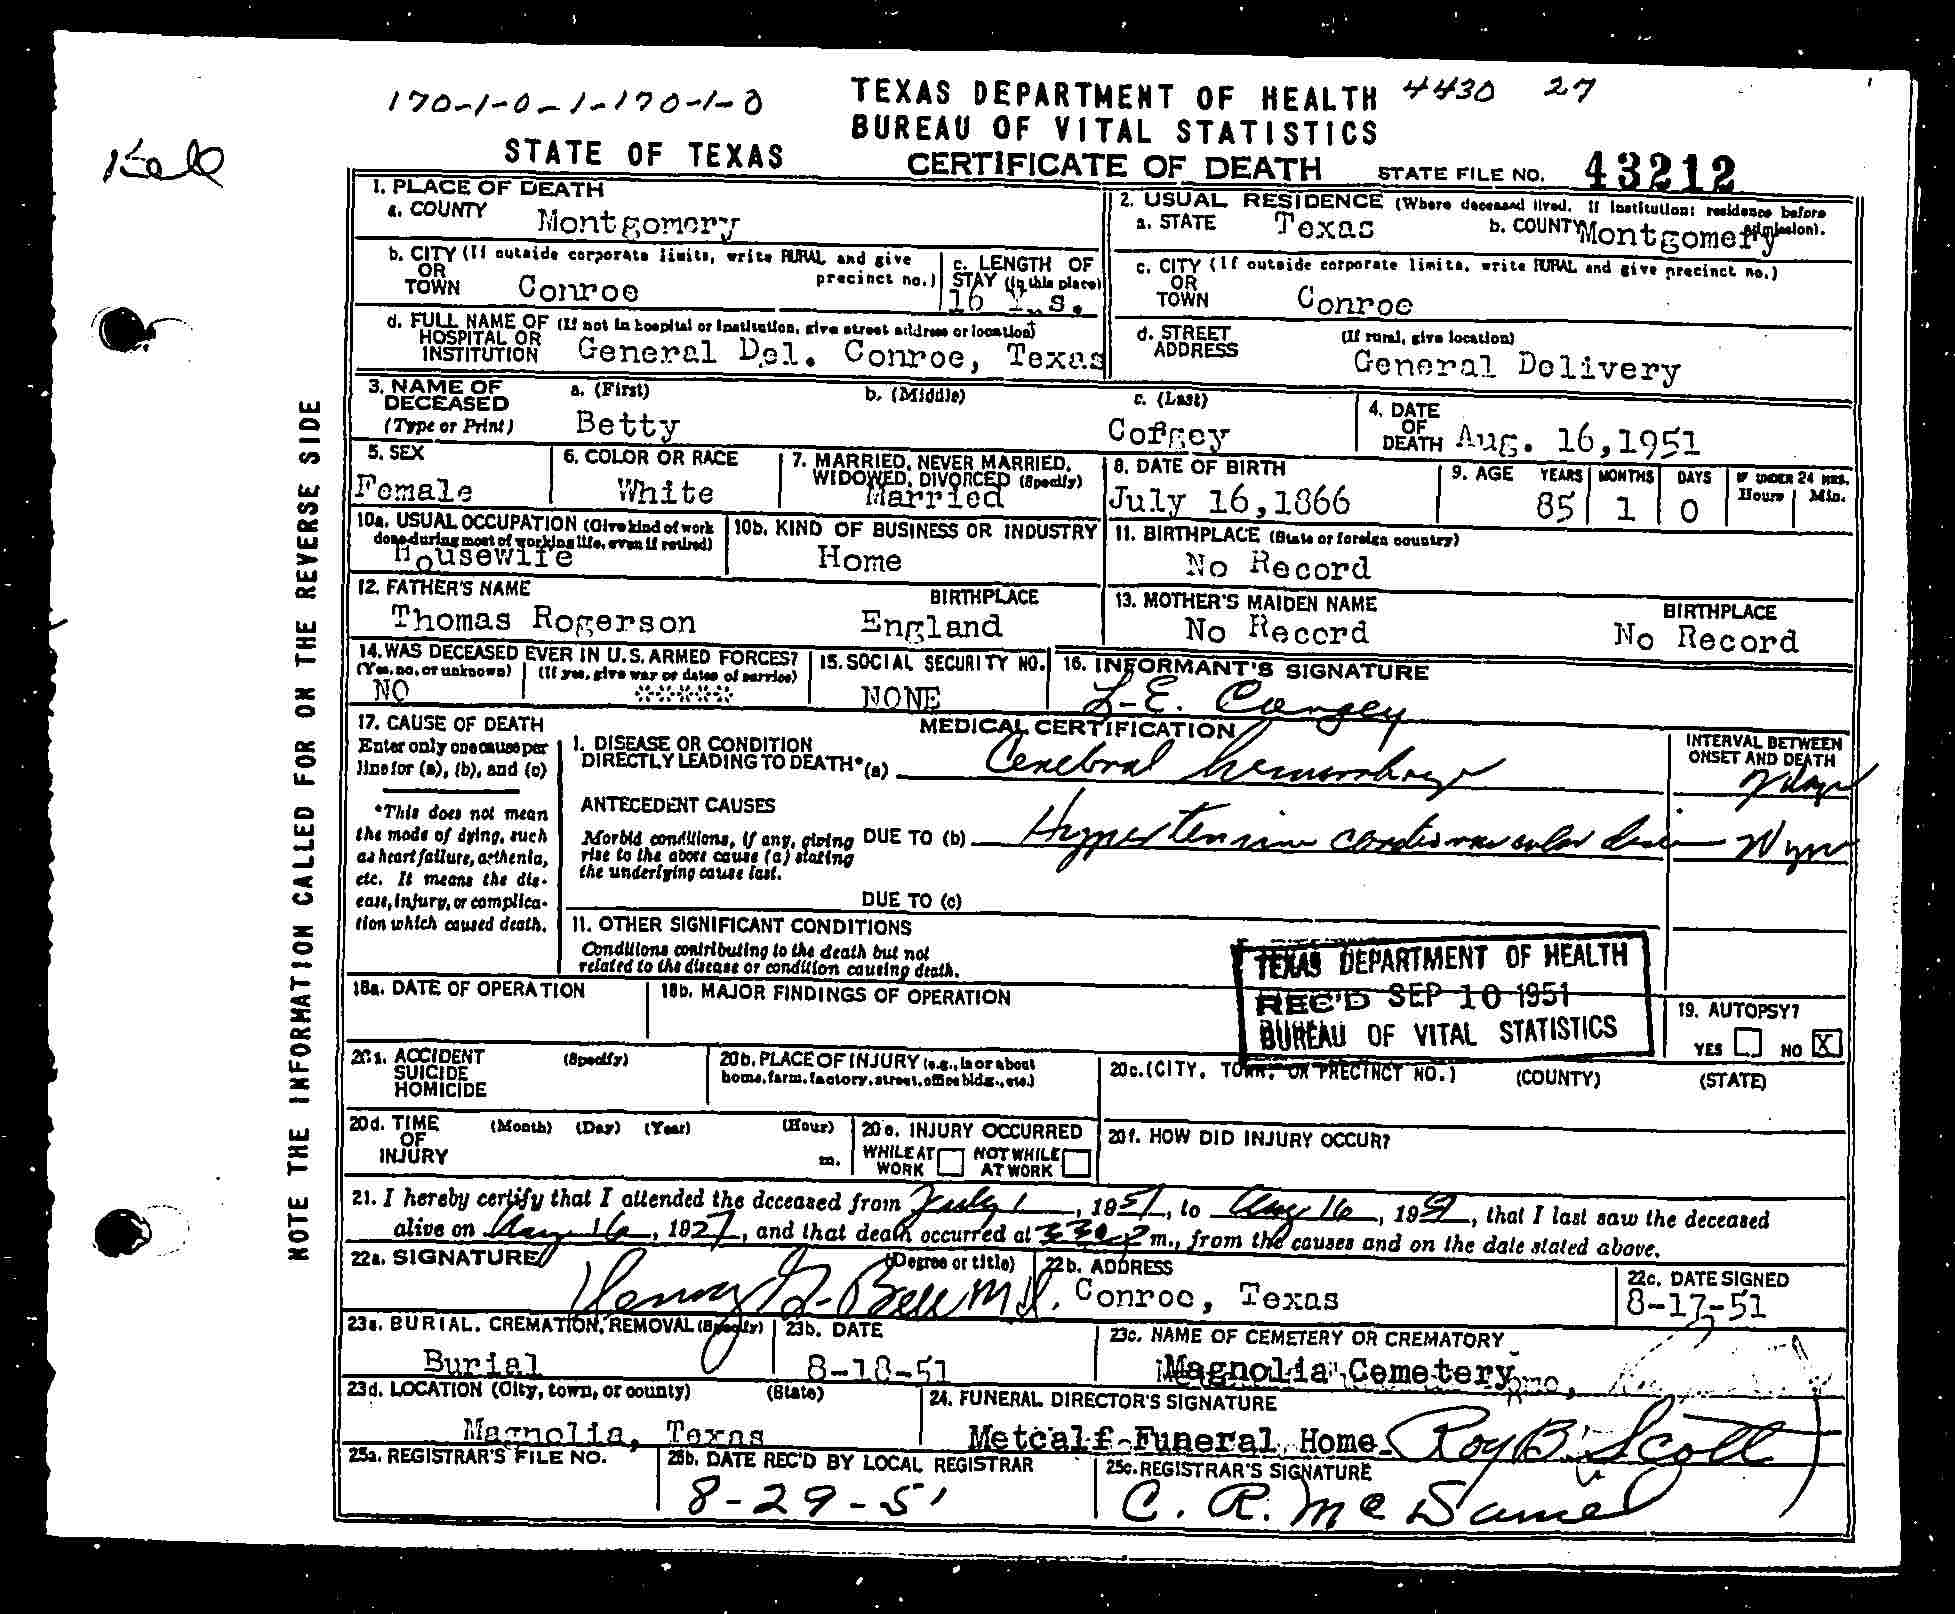 170-1-0-1-170-1-0
TEXAS DEPARTMENT OF HEALTH 4430 27
BUREAU OF VITAL STATISTICS
STATE OF TEXAS
CERTIFICATE OF DEATH STATE FILE NO. 43212
NOTE THE INFORMATION CALLED FOR ON THE REVERSE SIDE
1. PLACE OF DEATH
a. COUNTY Montgomery
2. USUAL RESIDENCE (Where deceased lived. If institution: residence before admission).
a. STATE Texas b. COUNTY Montgomery
b. CITY (If outside corporate limits, write RURAL and give precinct no.)
OR
TOWN Conroe
c. LENGTH OF
STAY (in this place)
16
c. CITY (If outside corporate limits, write RURAL and give precinct no.)
OR
TOWN Conroe
d. FULL NAME OF (If not in hospital or institution, give street address or location)
HOSPITAL OR
INSTITUTION General Del. Conroe, Texas
d. STREET (If rural, give location)
ADDRESS General Delivery
3. NAME OF a. (First) b. (Middle) c. (Last)
DECEASED
(Type or Print) Betty
4. DATE
OF
DEATH Aug. 16,1951
5. SEX
Female
6. COLOR OR RACE
White
7. MARRIED, NEVER MARRIED,
WIDOWED, DIVORCED (Specify)
Married
8. DATE OF BIRTH
July 16,1866
9. AGE YEARS MONTHS DAYS IF UNDER 24 HRS.
Hours Min.
85 1 0
10a. USUAL OCCUPATION (Give kind of work
done during most of working life, even if retired)
Housewife
10b. KIND OF BUSINESS OR INDUSTRY
Home
11. BIRTHPLACE (State or foreign country)
No Record
12. FATHER'S NAME BIRTHPLACE
Thomas Rogerson England
13. MOTHER'S MAIDEN NAME BIRTHPLACE
No Record No Record
14. WAS DECEASED EVER IN U.S. ARMED FORCES?
(Yes, no, or unknown) (If yes, give war or dates of service)
NO ******
15. SOCIAL SECURITY NO.
NONE
16. INFORMANT'S SIGNATURE
L-E.
17. CAUSE OF DEATH
Enter only one cause per
line for (a), (b), and (c)
*This does not mean
the mode of dying, such
as heart failure, asthenia,
etc. It means the dis-
ease, injury, or complica-
tion which caused death.
MEDICAL CERTIFICATION
I. DISEASE OR CONDITION
DIRECTLY LEADING TO DEATH* (a) Cerebral hemorrhage
INTERVAL BETWEEN
ONSET AND DEATH
ANTECEDENT CAUSES
Morbid conditions, if any, giving
rise to the above cause (a) stating
the underlying cause last.
DUE TO (b) Hypertensive cardiovascular
DUE TO (c)
11. OTHER SIGNIFICANT CONDITIONS
Conditions contributing to the death but not
related to the disease or condition causing death.
TEXAS DEPARTMENT OF HEALTH
REC'D SEP 10 1951
BUREAU OF VITAL STATISTICS
18a. DATE OF OPERATION
18b. MAJOR FINDINGS OF OPERATION
19. AUTOPSY?
YES NO X
20a. ACCIDENT (Specify)
SUICIDE
HOMICIDE
20b. PLACE OF INJURY (e.g., in or about
home, farm, factory, street, office bldg., etc.)
20c. (CITY, TOWN, OR PRECINCT NO.) (COUNTY) (STATE)
20d. TIME (Month) (Day) (Year) (Hour)
OF
INJURY m.
20e. INJURY OCCURRED
WHILE AT WORK NOT WHILE AT WORK
20f. HOW DID INJURY OCCUR?
21. I hereby certify that I attended the deceased from July 1, 1951, to Aug 16, 1951, that I last saw the deceased
alive on Aug 16, 19, and that death occurred at m., from the causes and on the date stated above.
22a. SIGNATURE (Degree or title)
Henry Bell M.D.
22b. ADDRESS
Conroe, Texas
22c. DATE SIGNED
8-17-51
23a. BURIAL, CREMATION, REMOVAL (Specify)
Burial
23b. DATE
8-18-51
23c. NAME OF CEMETERY OR CREMATORY
Magnolia Cemetery
23d. LOCATION (City, town, or county) (State)
Magnolia, Texas
24. FUNERAL DIRECTOR'S SIGNATURE
Metcalf Funeral Home Roy B. Scott
25a. REGISTRAR'S FILE NO.
25b. DATE REC'D BY LOCAL REGISTRAR
8-29-51
25c. REGISTRAR'S SIGNATURE
C. R. McDaniel